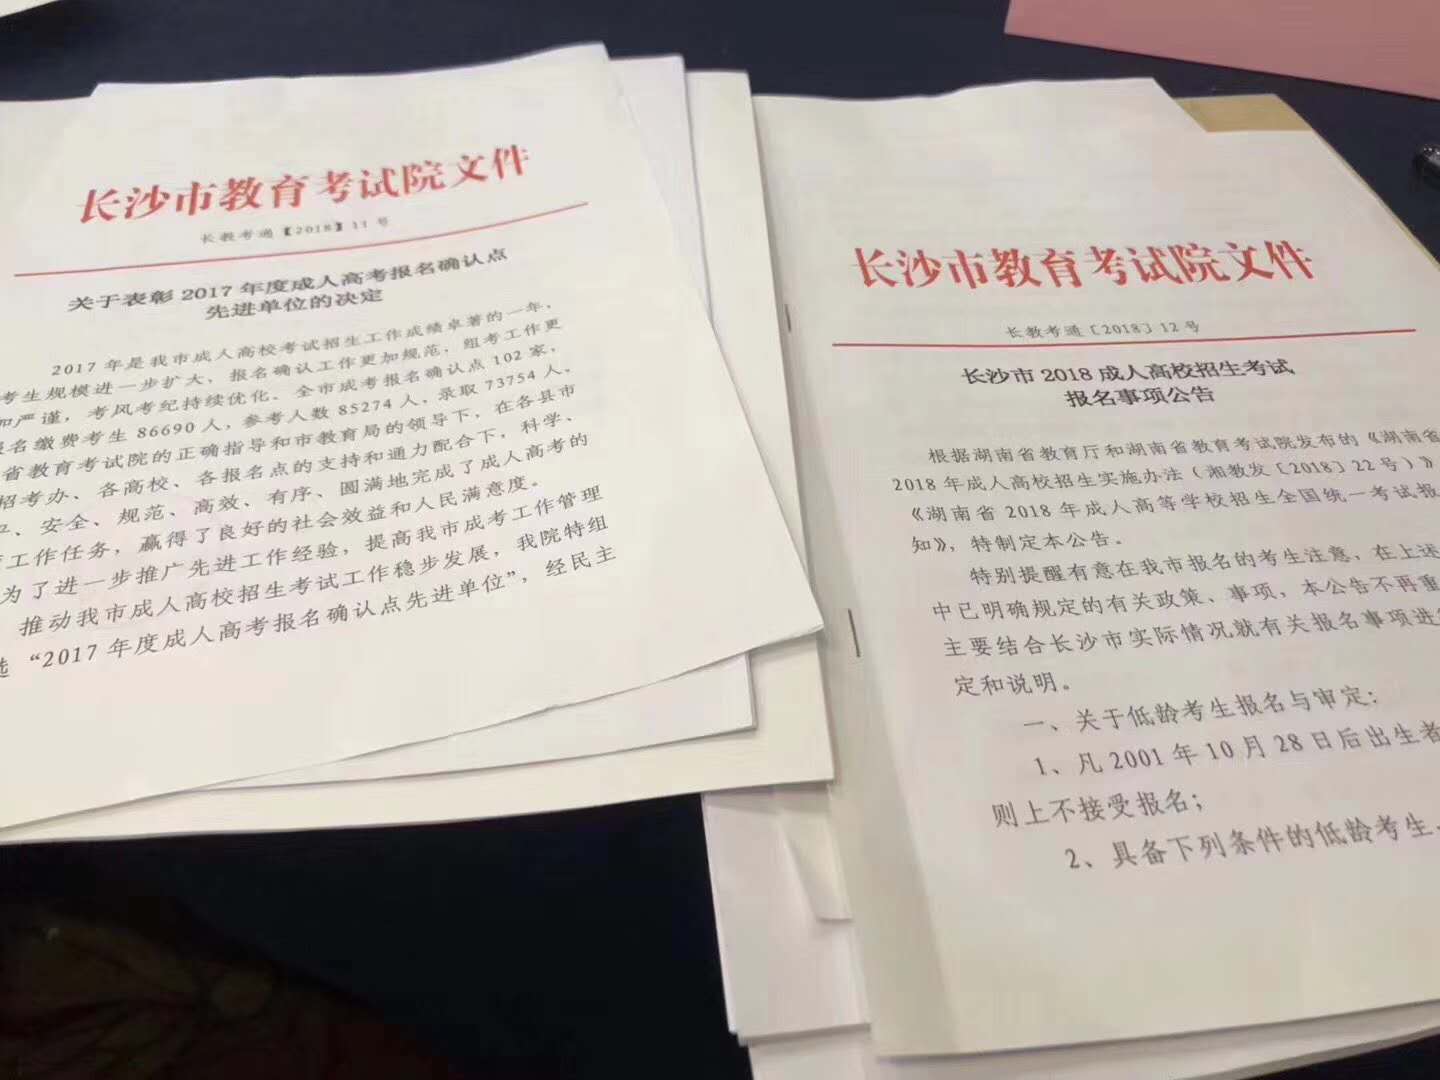 长沙市教育考试院文件
长教考通【2018】11 号
关于表彰 2017 年度成人高考报名确认点
先进单位的决定
2017 年是我市成人高校考试招生工作成绩卓著的一年，
考生规模进一步扩大，报名确认工作更加规范，组考工作更
加严谨，考风考纪持续优化、全市成考报名确认点 102 家，
报名缴费考生 86690 人，参考人数 85274 人，录取 73754 人，
省教育考试院的正确指导和市教育局的领导下，在各县市
招考办、各高校、各报名点的支持和通力配合下，科学、
、安全、规范、高效、有序、圆满地完成了成人高考的
工作任务，赢得了良好的社会效益和人民满意度。
为了进一步推广先进工作经验，提高我市成考工作管理
推动我市成人高校招生考试工作稳步发展，我院特组
选 “2017 年度成人高考报名确认点先进单位”，经民主
长沙市教育考试院文件
长教考通〔2018〕12 号
长沙市 2018 成人高校招生考试
报名事项公告
根据湖南省教育厅和湖南省教育考试院发布的《湖南省
2018 年成人高校招生实施办法（湘教发〔2018〕22 号）》
《湖南省 2018 年成人高等学校招生全国统一考试报
知》，特制定本公告。
特别提醒有意在我市报名的考生注意，在上述
中已明确规定的有关政策、事项，本公告不再重
主要结合长沙市实际情况就有关报名事项进
定和说明。
一、关于低龄考生报名与审定：
1、凡 2001 年 10 月 28 日后出生者
则上不接受报名；
2、具备下列条件的低龄考生